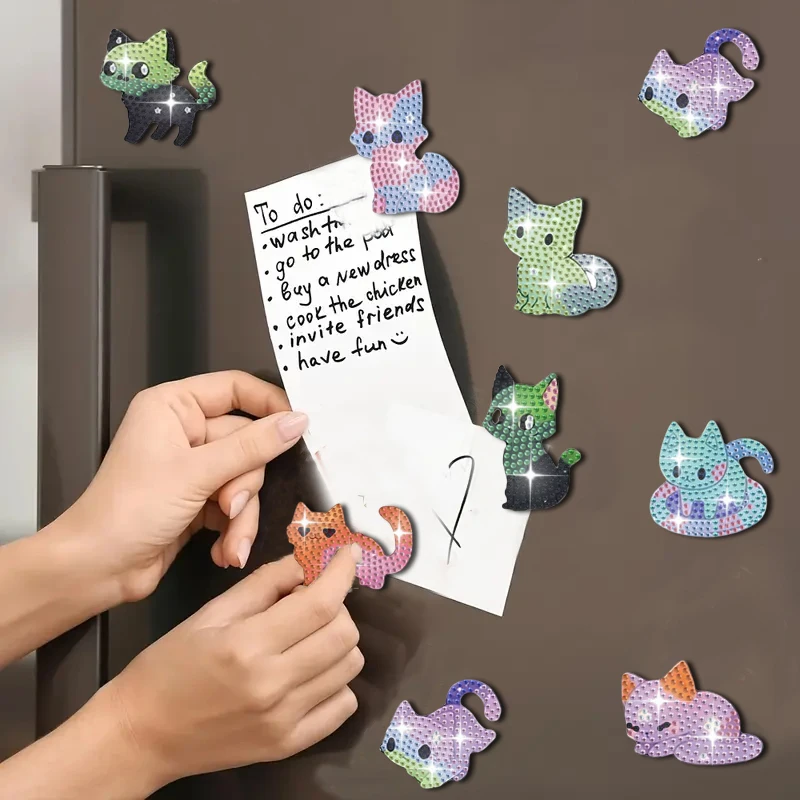 To do:
• wash
• go to the pool
• Buy a new dress
• cook the chicken
• invite friends
• have fun